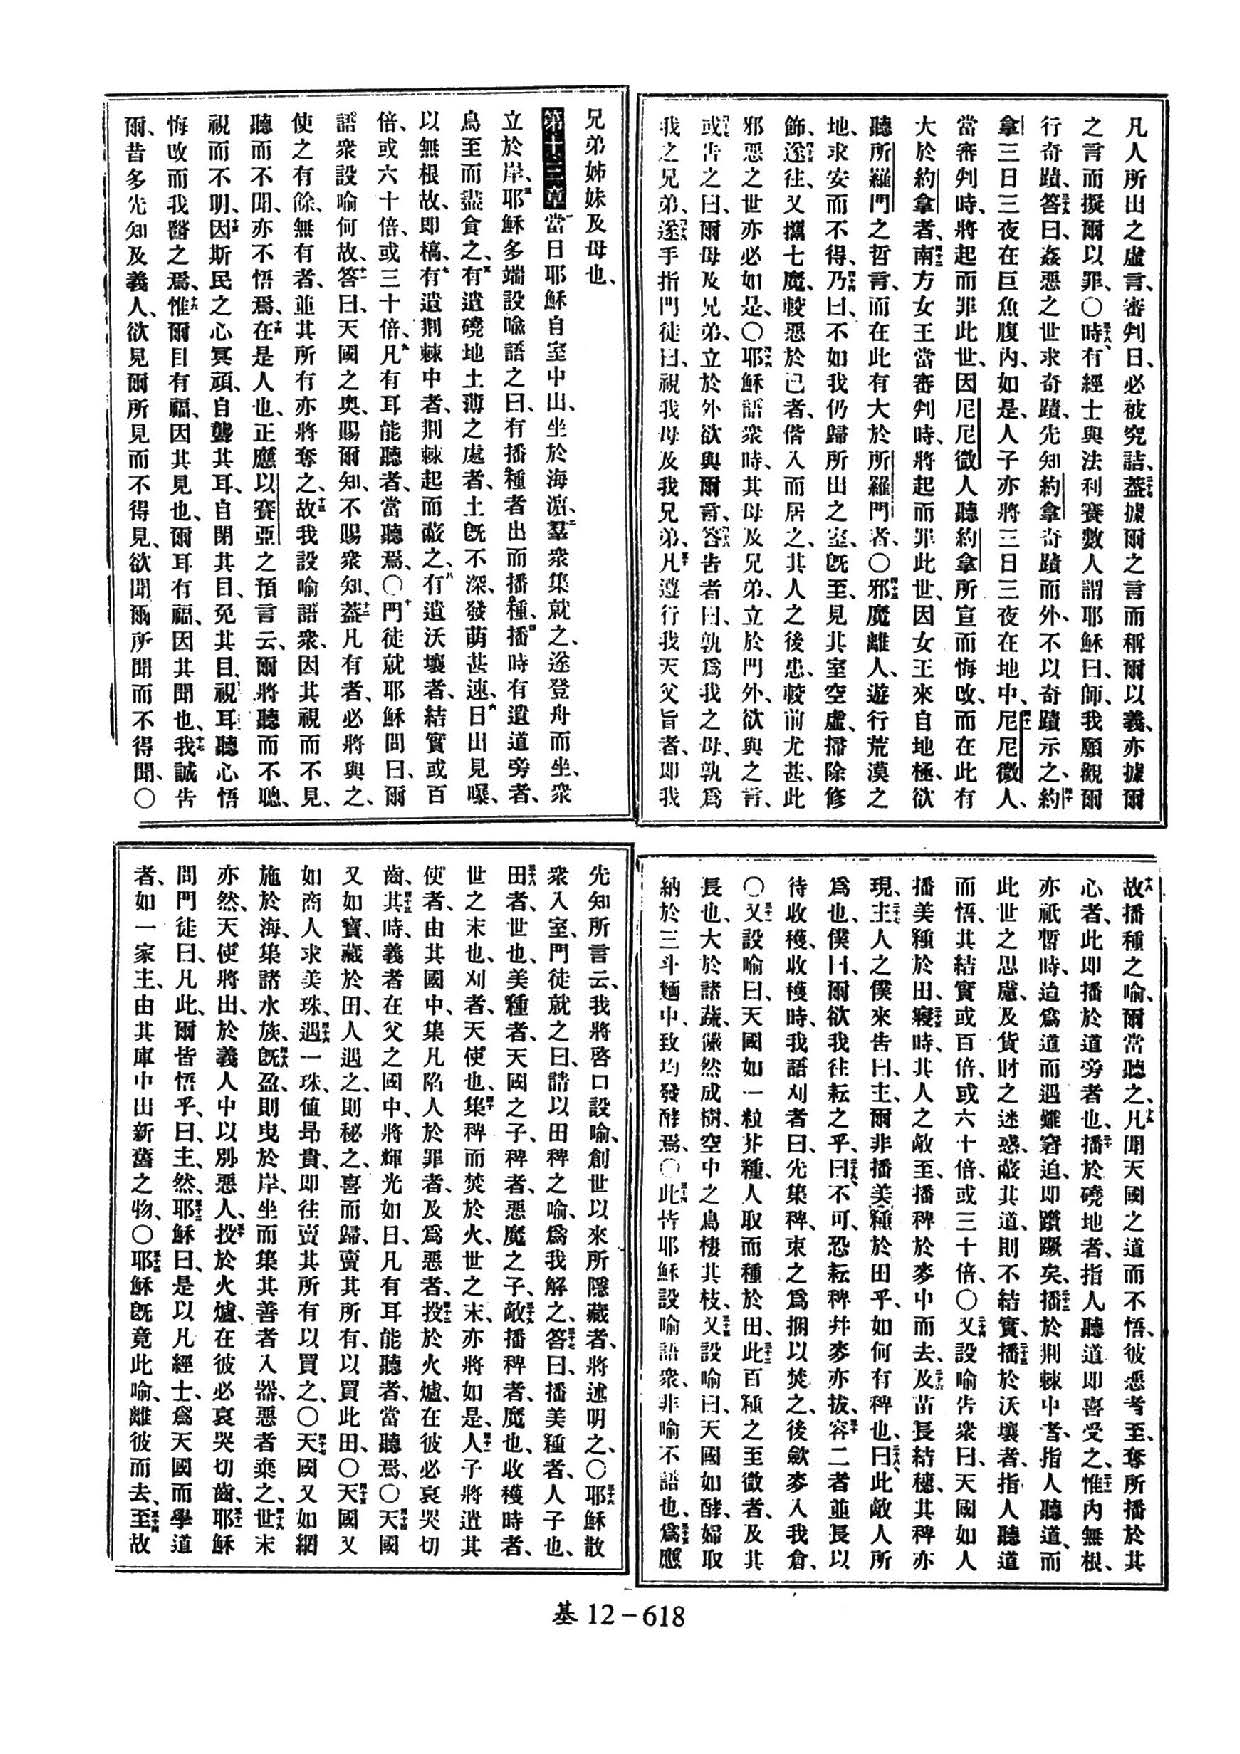 凡人所出之虛言、審判日、必被究詰、蓋據爾之言而稱爾以義、亦據爾
之言而擬爾以罪、○時有經士與法利賽數人謂耶穌曰、師、我願觀爾
行奇蹟、答曰、姦惡之世求奇蹟、先知約拿奇蹟而外、不以奇蹟示之、約
拿三日三夜在巨魚腹內、如是、人子亦將三日三夜在地中、尼尼微人、
當審判時、將起而罪此世、因尼尼微人聽約拿所宣而悔改、而在此有
大於約拿者、南方女王當審判時、將起而罪此世、因女王來自地極、欲
聽所羅門之哲言、而在此有大於所羅門者、○邪魔離人、遊行荒漠之
地、求安而不得、乃曰、不如我仍歸所出之室、既至、見其室空虛、掃除修
飾、遂往、又攜七魔、較惡於己者、偕入而居之、其人之後患、較前尤甚、此
邪惡之世亦必如是、○耶穌語衆時、其母及兄弟、立於門外、欲與之言、
或告之曰、爾母及兄弟、立於外欲與爾言、答告者曰、孰爲我之母、孰爲
我之兄弟、遂手指門徒曰、視我母及我兄弟、凡遵行我天父旨者、即我
兄弟姊妹及母也、
第十三章 當日耶穌自室中出、坐於海濱、羣衆集就之、遂登舟而坐、衆
立於岸、耶穌多端設喻語之曰、有播種者出而播種、播時有遺道旁者、
鳥至而盡食之、有遺磽地土薄之處者、土既不深、發萌甚速、日出見曝、
以無根故、即槁、有遺荆棘中者、荆棘起而蔽之、有遺沃壤者、結實或百
倍、或六十倍、或三十倍、凡有耳能聽者、當聽焉、○門徒就耶穌問曰、爾
語衆設喻何故、答曰、天國之奧、賜爾知、不賜衆知、蓋凡有者、必將與之、
使之有餘、無有者、並其所有亦將奪之、故我設喻語衆、因其視而不見、
聽而不聞、亦不悟焉、在是人也、正應以賽亞之預言云、爾將聽而不聰、
視而不明、因斯民之心冥頑、自聾其耳、自閉其目、免其目視耳聽心悟
悔改而我醫之焉、惟爾目有福、因其見也、爾耳有福、因其聞也、我誠告
爾、昔多先知及義人、欲見爾所見而不得見、欲聞爾所聞而不得聞、○
故播種之喻、爾當聽之、凡聞天國之道而不悟、彼惡者至、奪所播於其
心者、此即播於道旁者也、播於磽地者、指人聽道即喜受之、惟內無根、
亦祇暫時、迨爲道而遇難窘迫、即躓蹶矣、播於荆棘中者、指人聽道、而
此世之思慮、及貨財之迷惑、蔽其道、則不結實、播於沃壤者、指人聽道
而悟、其結實或百倍、或六十倍、或三十倍、○又設喻告衆曰、天國如人
播美種於田、寢時、其人之敵至、播稗於麥中而去、及苗長結穗、其稗亦
現、主人之僕來告曰、主、爾非播美種於田乎、如何有稗也、曰、此敵人所
爲也、僕曰、爾欲我往耘之乎、曰、不可、恐耘稗幷麥亦拔、容二者並長以
待收穫、收穫時、我語刈者曰、先集稗、束之爲捆以焚之、後斂麥入我倉、
○又設喻曰、天國如一粒芥種、人取而種於田、此百種之至微者、及其
長也、大於諸蔬、儼然成樹、空中之鳥棲其枝、又設喻曰、天國如酵、婦取
納於三斗麵中、致均發酵焉、○此皆耶穌設喻語衆、非喻不語也、爲應
先知所言云、我將啓口設喻、創世以來所隱藏者、將述明之、○耶穌散
衆入室、門徒就之曰、請以田稗之喻、爲我解之、答曰、播美種者、人子也、
田者、世也、美種者、天國之子、稗者、惡魔之子、敵播稗者、魔也、收穫時者、
世之末也、刈者、天使也、集稗而焚於火、世之末、亦將如是、人子將遣其
使者、由其國中、集凡陷人於罪者、及爲惡者、投於火爐、在彼必哀哭切
齒、其時、義者在父之國中、將輝光如日、凡有耳能聽者、當聽焉、○天國
又如寶、藏於田、人遇之、則秘之、喜而歸、賣其所有、以買此田、○天國又
如商人求美珠、遇一珠、值昻貴、即往賣其所有以買之、○天國又如網
施於海、集諸水族、既盈、則曳於岸、坐而集其善者入器、惡者棄之、世末
亦然、天使將出、於義人中以別惡人、投於火爐、在彼必哀哭切齒、耶穌
問門徒曰、凡此、爾皆悟乎、曰、主、然、耶穌曰、是以凡經士、爲天國而學道
者、如一家主、由其庫中出新舊之物、○耶穌既竟此喻、離彼而去、至故
基12-618